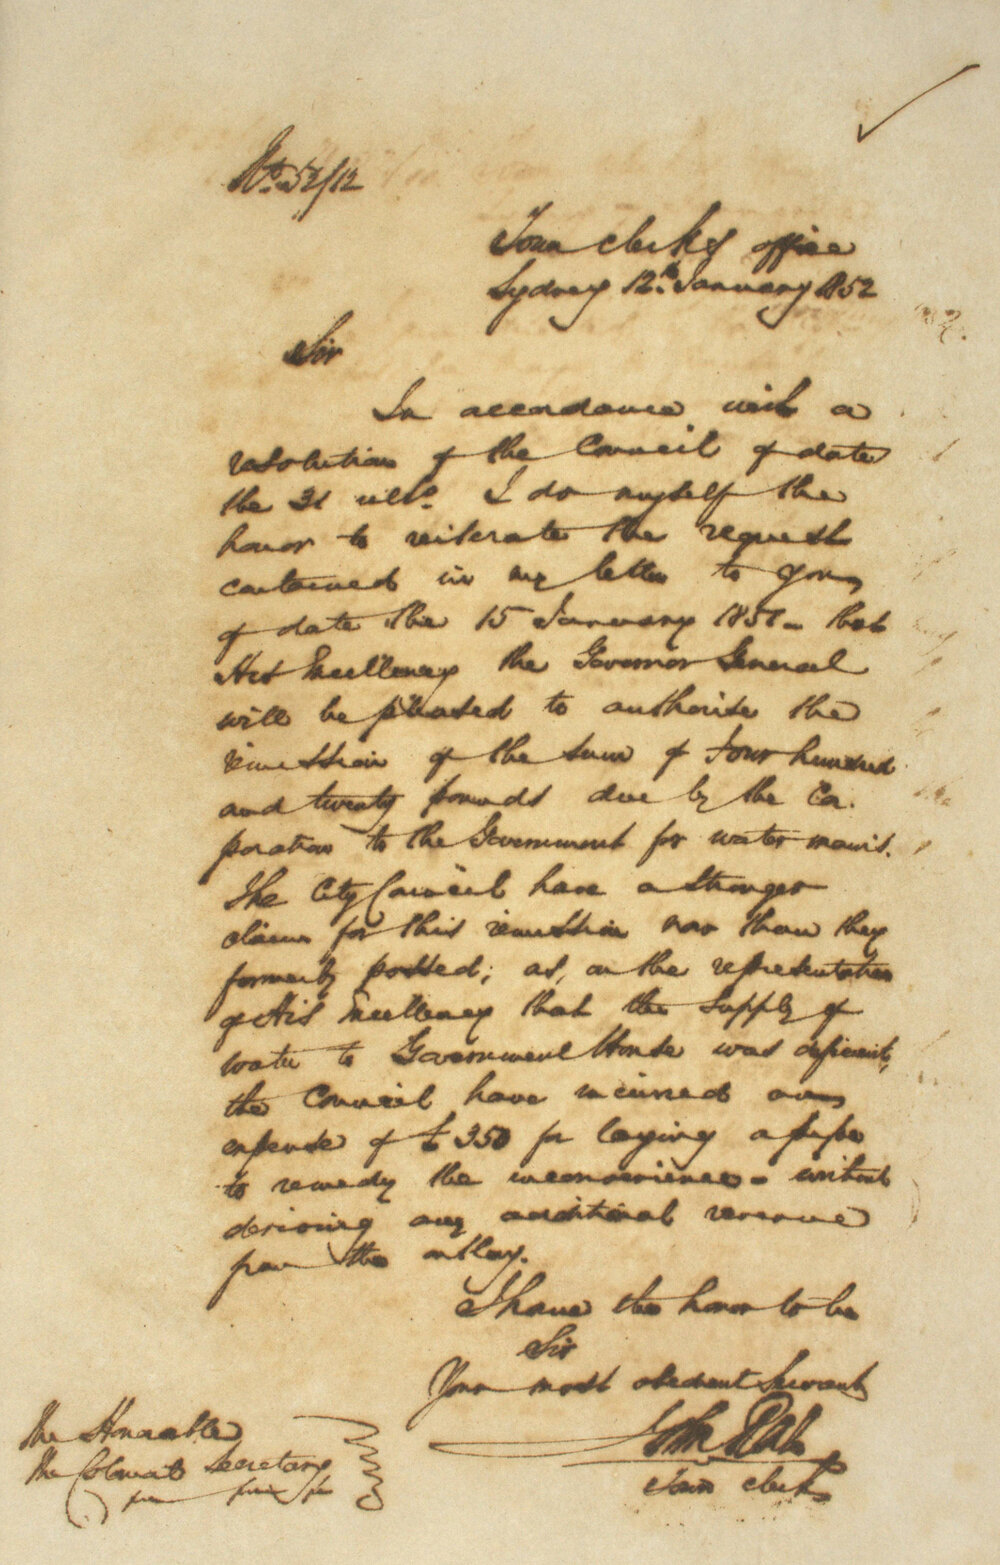 No. 52/12
Town Clerks office
Sydney 12th January 1852
Sir
In accordance with a
resolution of the Council of date
the 31 ulto. I do myself the
honor to reiterate the request
contained in my letter to you
of date the 15 January 1851 - that
His Excellency the Governor General
will be pleased to authorise the
remission of the sum of Four hundred
and twenty pounds due by the Co.
poration to the Government for water mains.
The City Council have a stronger
claim for this remission now than they
formerly possed; as, on the representation
of His Excellency that the supply of
water to Government House was deficient,
the Council have incurred an
expense of £350 for laying a pipe
to remedy the inconvenience - without
deriving any additional revenue
from the outlay.
I have the honor to be
Sir
Your most obedient Servant
John
Town Clerk
The Honorable
The Colonial Secretary